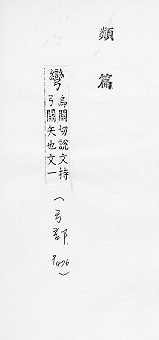 類篇
彎 烏關切說文持
弓關矢也文一
(弓部
P476)